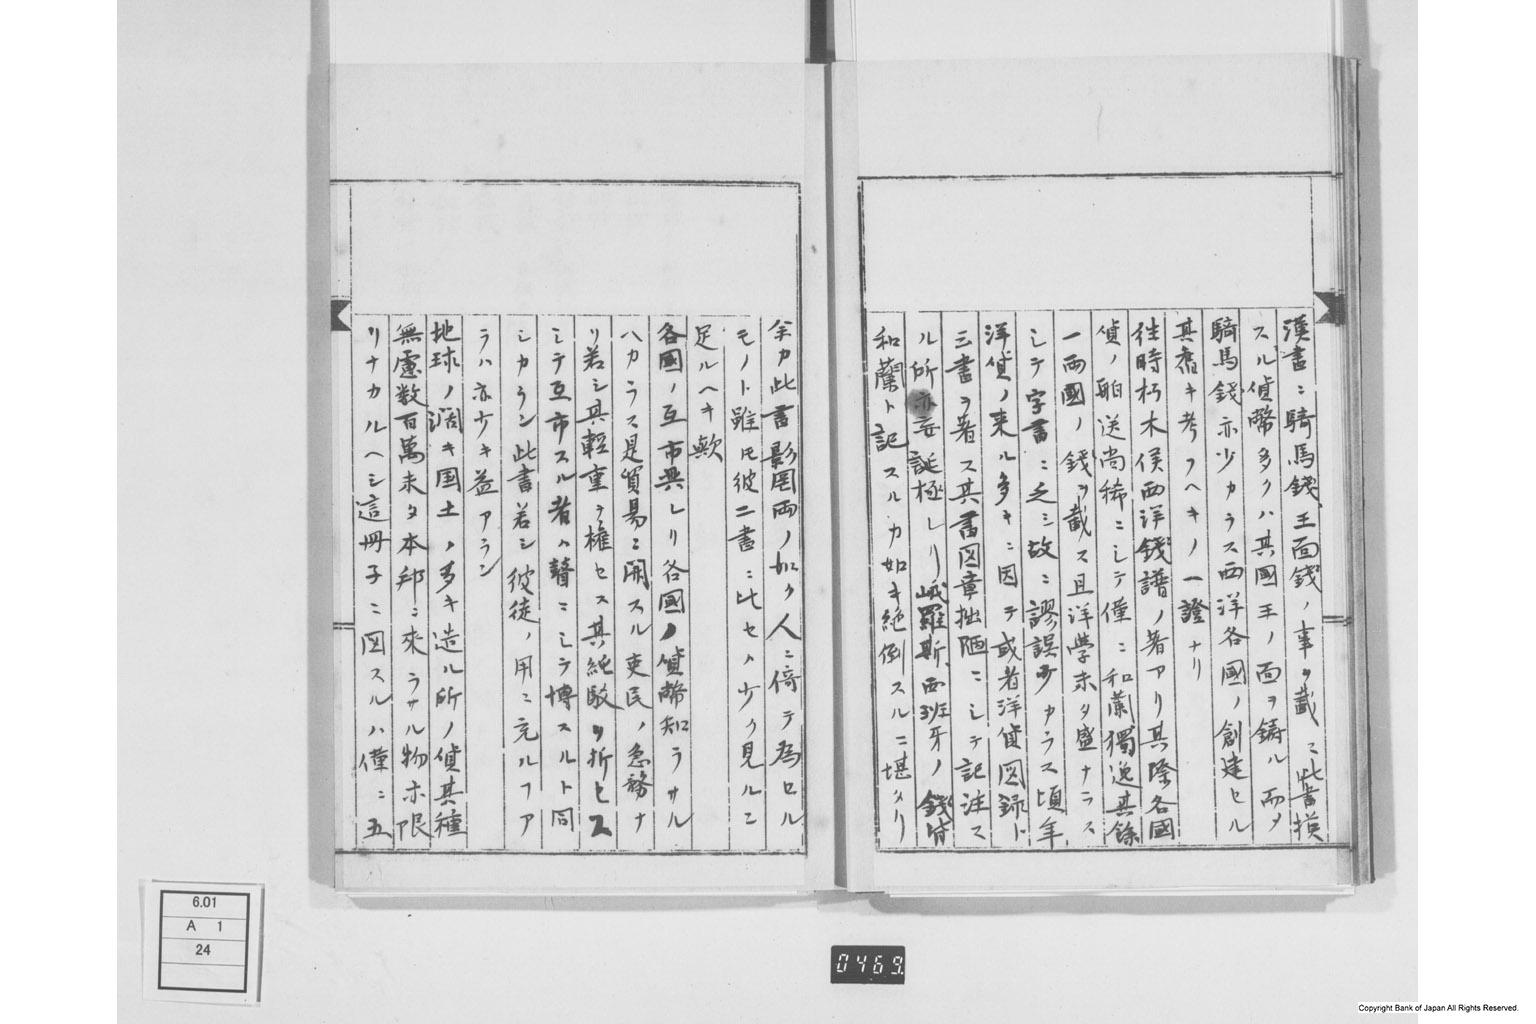 漢書ニ騎馬錢王面錢ノ事ヲ載ス此書摸
スル貨幣多クハ其國王ノ面ヲ鑄ル而メ
騎馬錢亦少カラス西洋各國ノ創建セル
其舊キ考フヘキノ一證ナリ
往時朽木侯西洋錢譜ノ著アリ其際各國
貨ノ舶送尚稀ニシテ僅ニ和蘭獨逸其餘
一兩國ノ錢ヲ載ス且洋學未タ盛ナラス
シテ字書ニ乏シ故ニ謬誤少カラス頃年
洋貨ノ来ル多キニ因テ或者洋貨図録ト
三書ヲ著ス其書図章拙陋ニシテ記注ス
ル所亦妄誕極レリ峨羅斯西班牙ノ錢皆
和蘭ト記スルカ如キ絶倒スルニ堪タリ
余カ此書影罔両ノ如ク人ニ倚テ為セル
モノト雖モ彼二書ニ比セハ少ク見ルニ
足ルヘキ歟
各國ノ互市興レリ各國ノ貨幣知ラサル
ハカラス是貿易ニ関スル吏民ノ急務ナ
リ若シ其輕重ヲ権セス其純駁ヲ折セス
シテ互市スル者ハ瞽ニシテ博スルト同
シカラン此書若シ彼徒ノ用ニ充ルフア
ラハ亦少キ益アラン
地球ノ濶キ国土ノ多キ造ル所ノ貨其種
無慮数百萬未タ本邦ニ來ラサル物亦限
リナカルヘシ這冊子ニ図スルハ僅ニ五
6.01
A 1
24
0469
Copyright Bank of Japan All Rights Reserved.